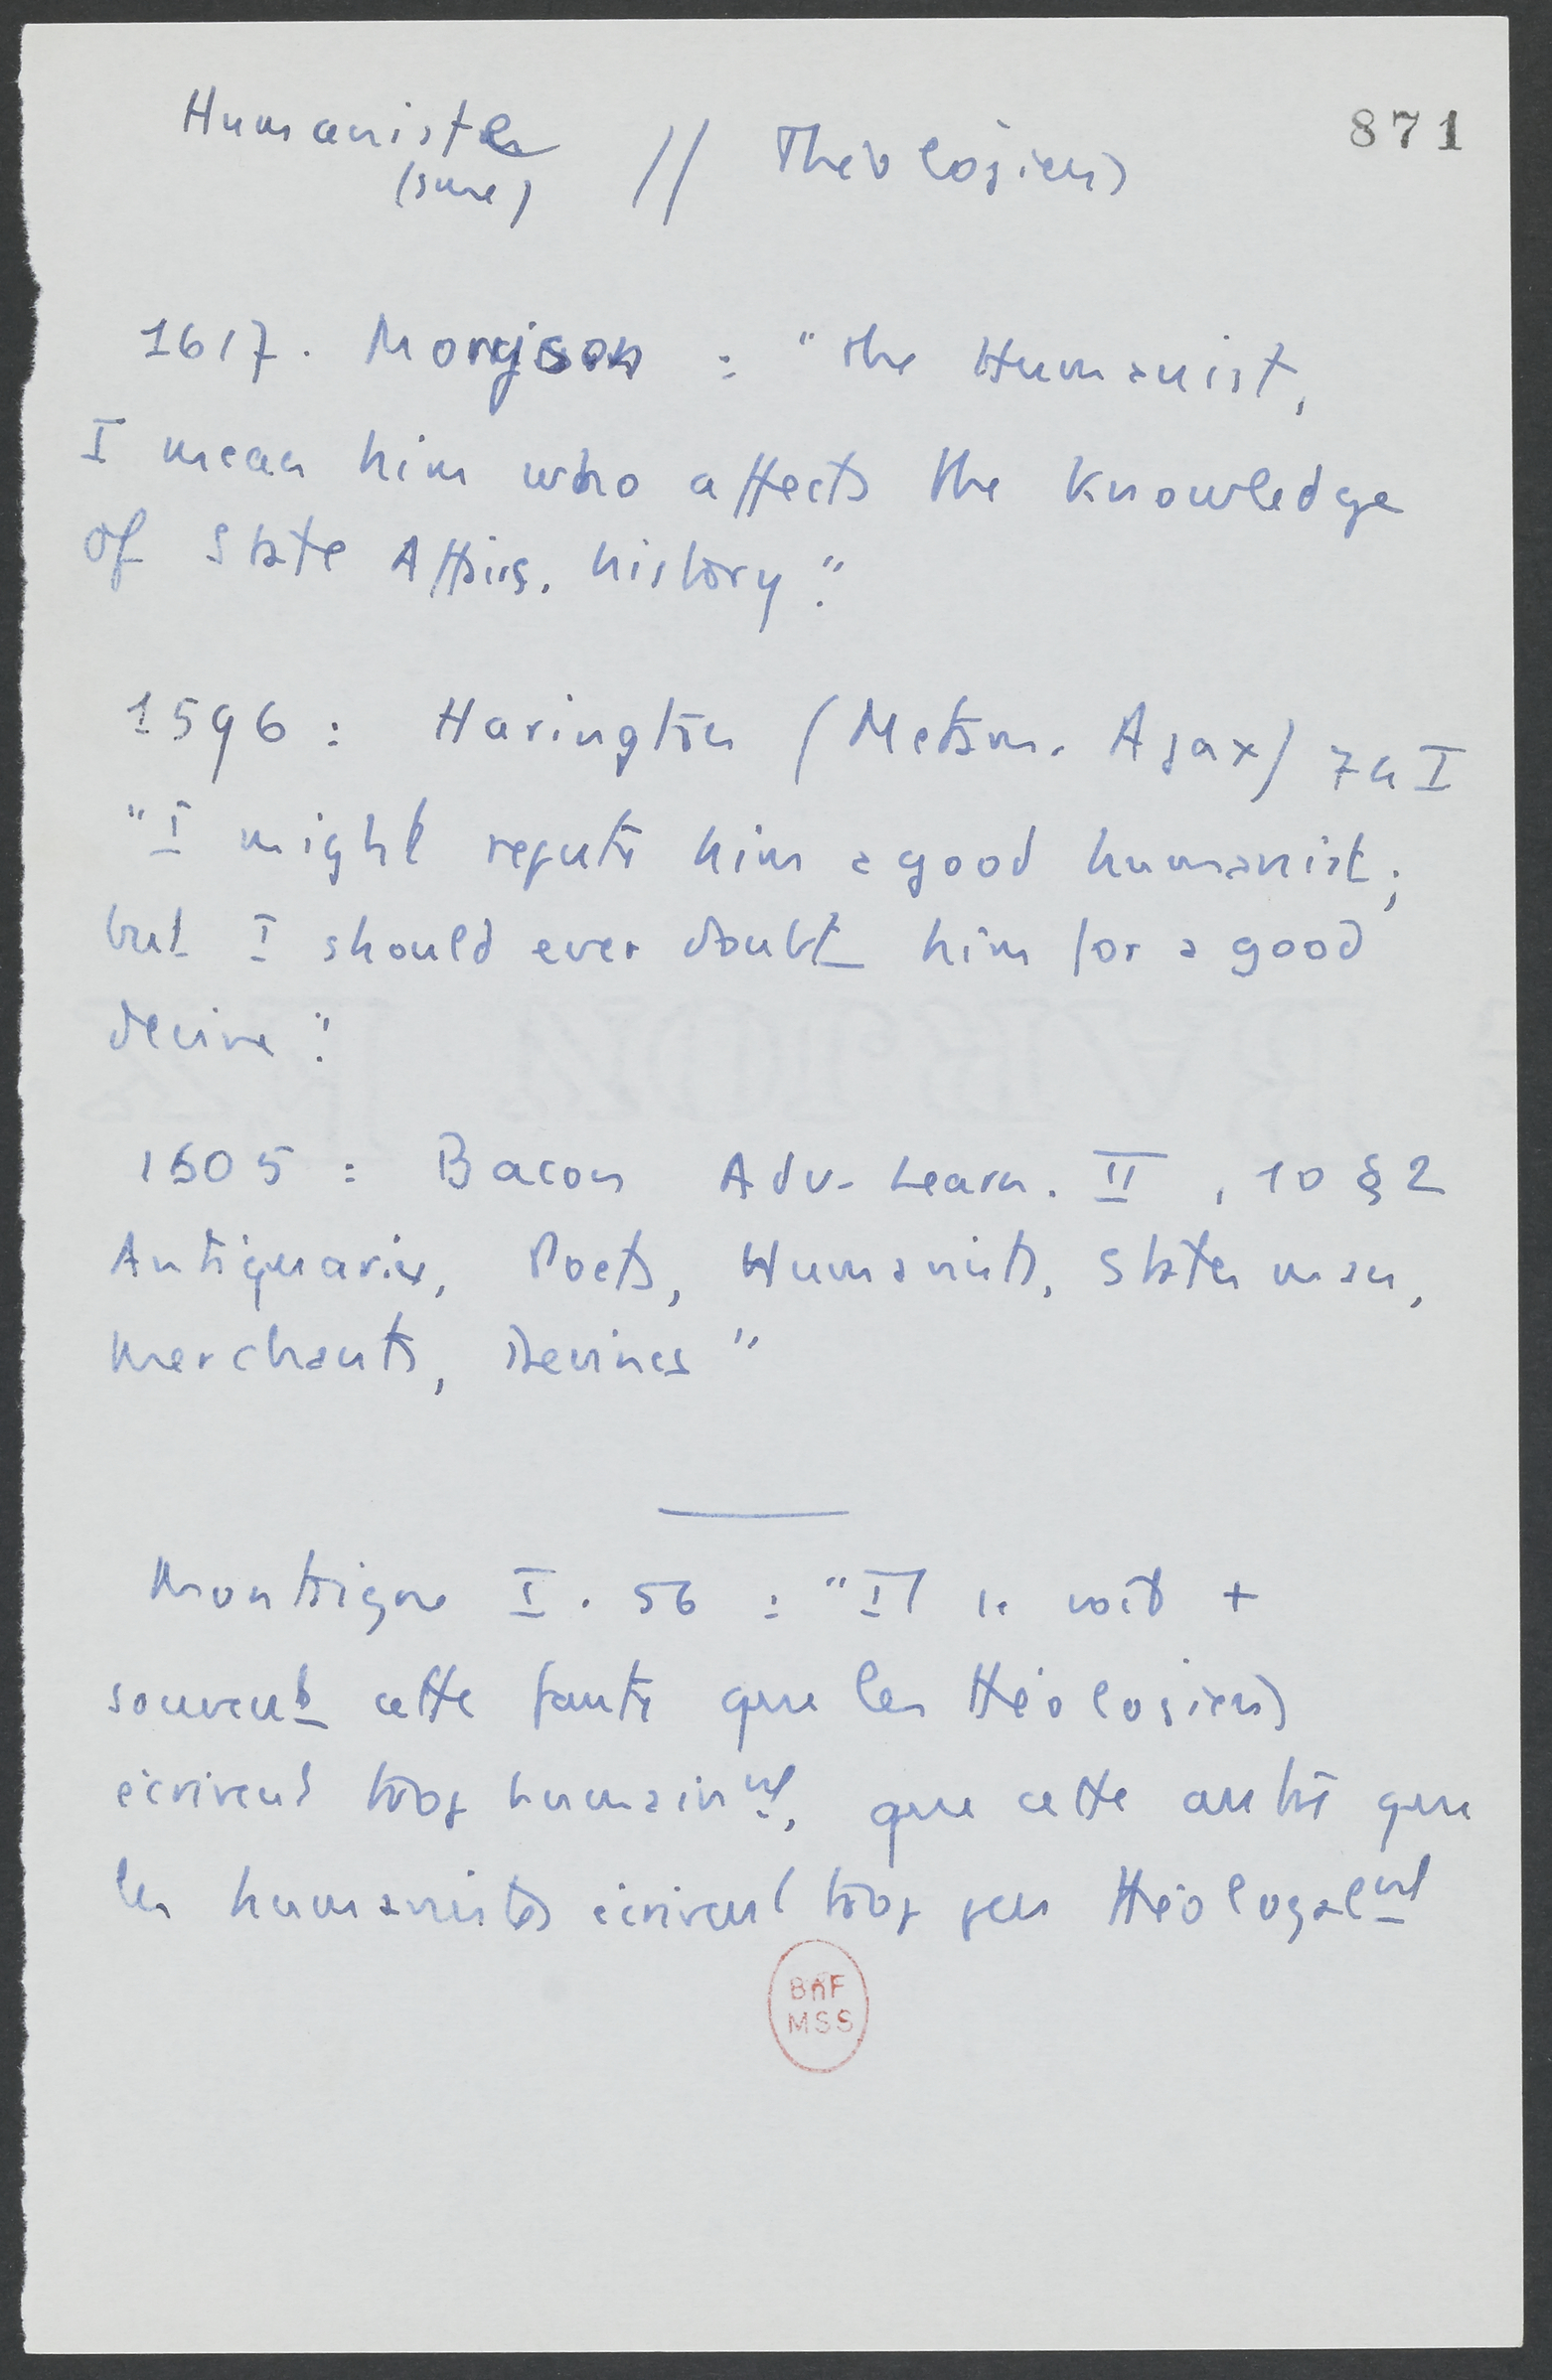 871
Humanistes // Théologiens
(suite)
1617. Moryson : "the Humanist,
I mean him who affects the knowledge
of State Affairs. history".
1596 : Harington (Metam. Ajax)
"I might repute him a good humanist;
but I should ever doubt him for a good
devine".
1605 : Bacon Adv. Learn. II, 10 § 2
Antiquaries, Poets, Humanists, States man,
Merchants, Devines"
Montaigne I. 56 : "Il se voit +
souvent cette faute que les théologiens
écrivent trop humaint, que cette autre que
les humanistes écrivent trop peu théologalt
BnF
MSS